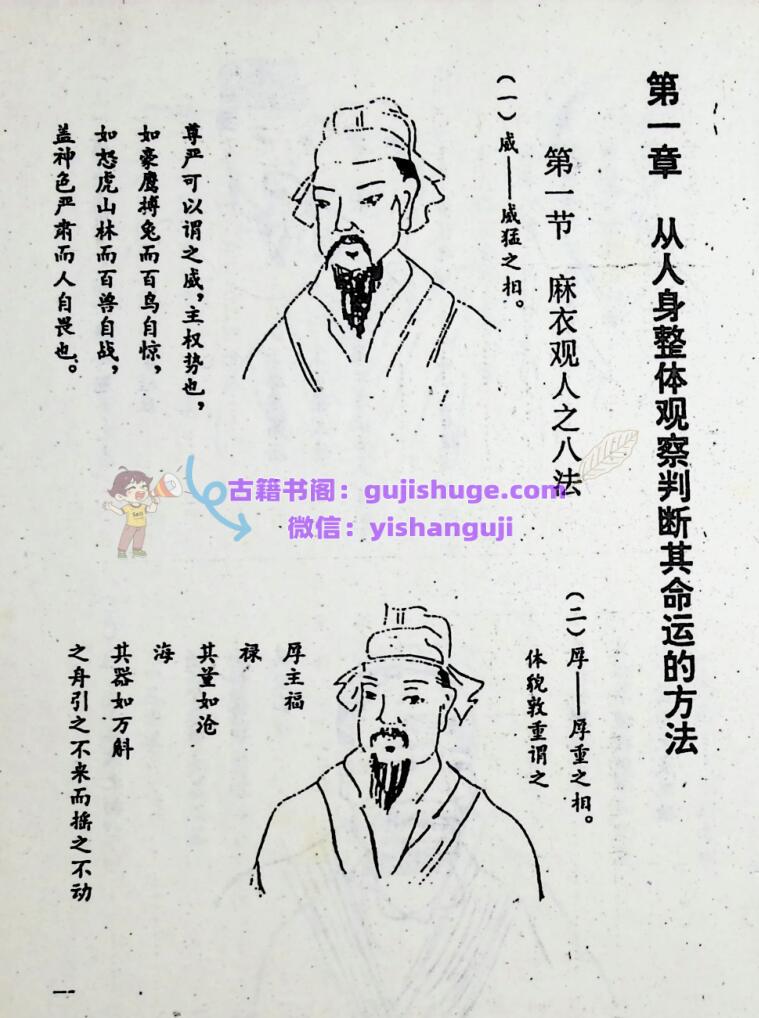 第一章　从人身整体观察判断其命运的方法
第一节　麻衣观人之八法
（一）威——威猛之相。
尊严可以谓之威，主权势也，
如豪鹰搏兔而百鸟自惊，
如怒虎山林而百兽自战，
盖神色严肃而人自畏也。
（二）厚——厚重之相。
体貌敦重谓之
厚主福
禄
其量如沧
海
其器如万斛
之舟引之不来而摇之不动
古籍书阁：gujishuge.com
微信：yishanguji
一